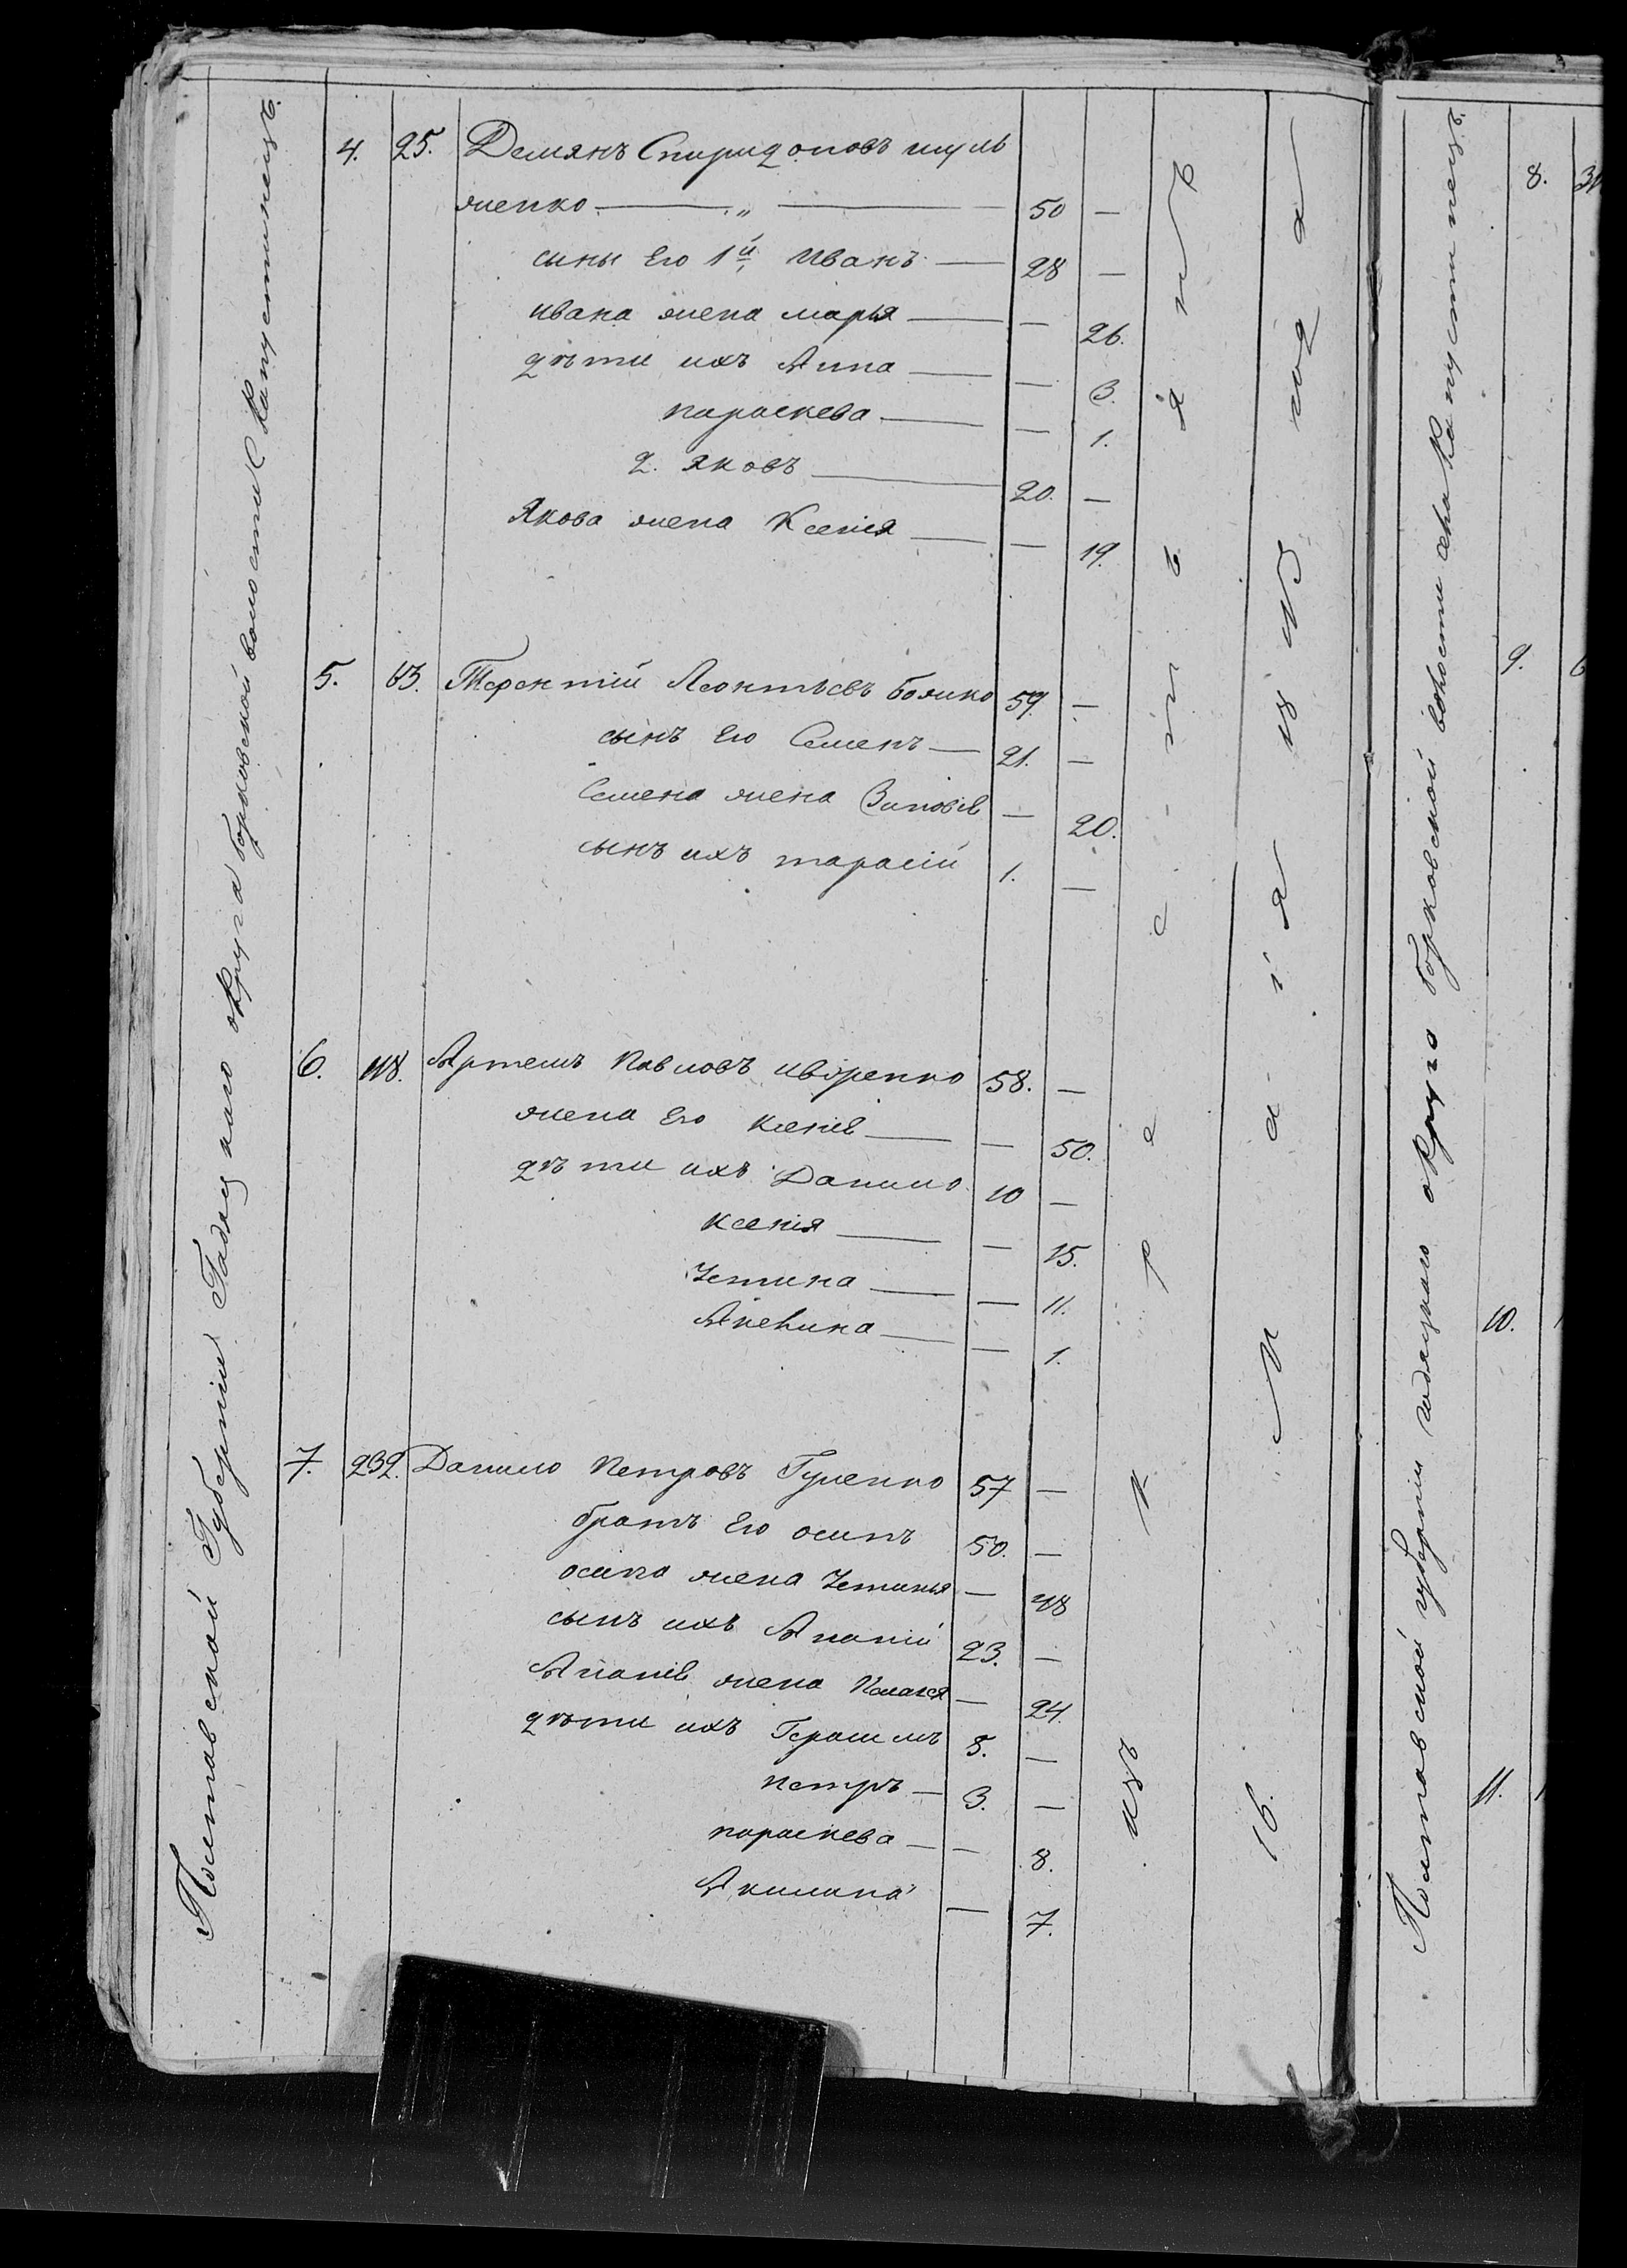 Полтавской Губерніи Гадяцкаго округа борковской волости С Капустинецъ.
4. 25. Демянъ Спиридоновъ шуль
женко — „ — 50 —
сины Его 1й Иванъ — 28 —
ивана жена марья — — 26.
дѣти ихъ Анна — — 3.
параскева — — 1.
2. Яковъ — 20. —
Якова жена Ксенія — — 19.
5. 83. Терентій Леонтьевъ божко 59. —
сынъ Его Семенъ — 21. —
Семена жена Зиновія — 20.
сынъ ихъ тарасій 1. —
6. 118. Артемъ Павловъ 58. —
жена Его Ксенія — — 50.
дѣти ихъ Данило 10 —
Ксенія — — 15.
Устина — — 11.
Акелина — — 1.
7. 232. Данило Петровъ Гуженко 57 —
братъ Его осипъ 50. —
осипа жена Устинья — 48
сынъ ихъ Ананій 23. —
Ананія жена Палагея — 24.
дѣти ихъ Герасимъ 5. —
петръ — 3. —
параскева — — 8.
Акилина — 7.
изъ крестьянъ
16. Маія 1835 года
Полтавской губерніи гадяцкаго округа борковской волости села Капустинецъ.
8.
9.
10.
11.